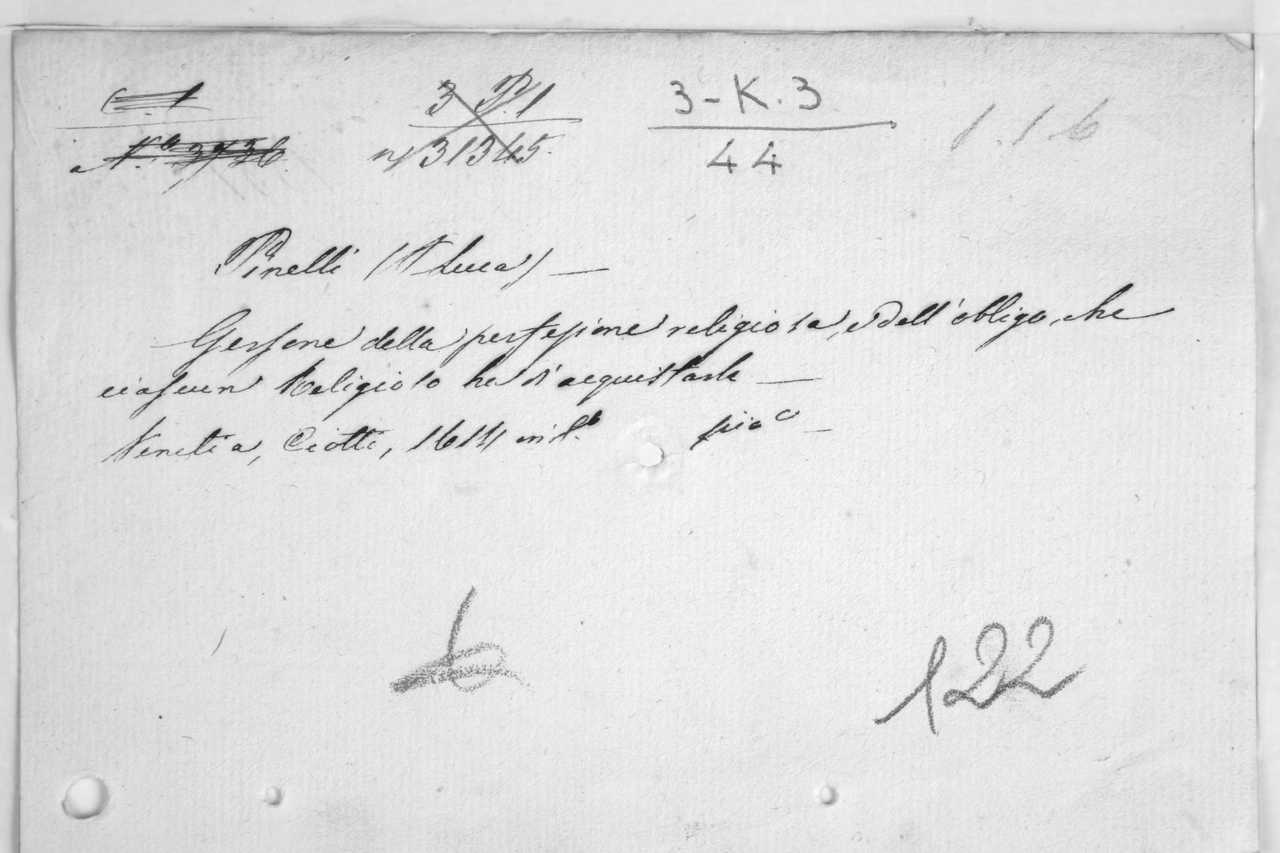 C. 1
3 P. 1
3-K.3
1.16
31345
44
Pinelli (P Luca) —
Gersone della perfezione religiosa, e dell'obligo, che
ciascun Religioso ha d'acquistarla —
Venetia, Ciotti, 1614 in 12
6
122